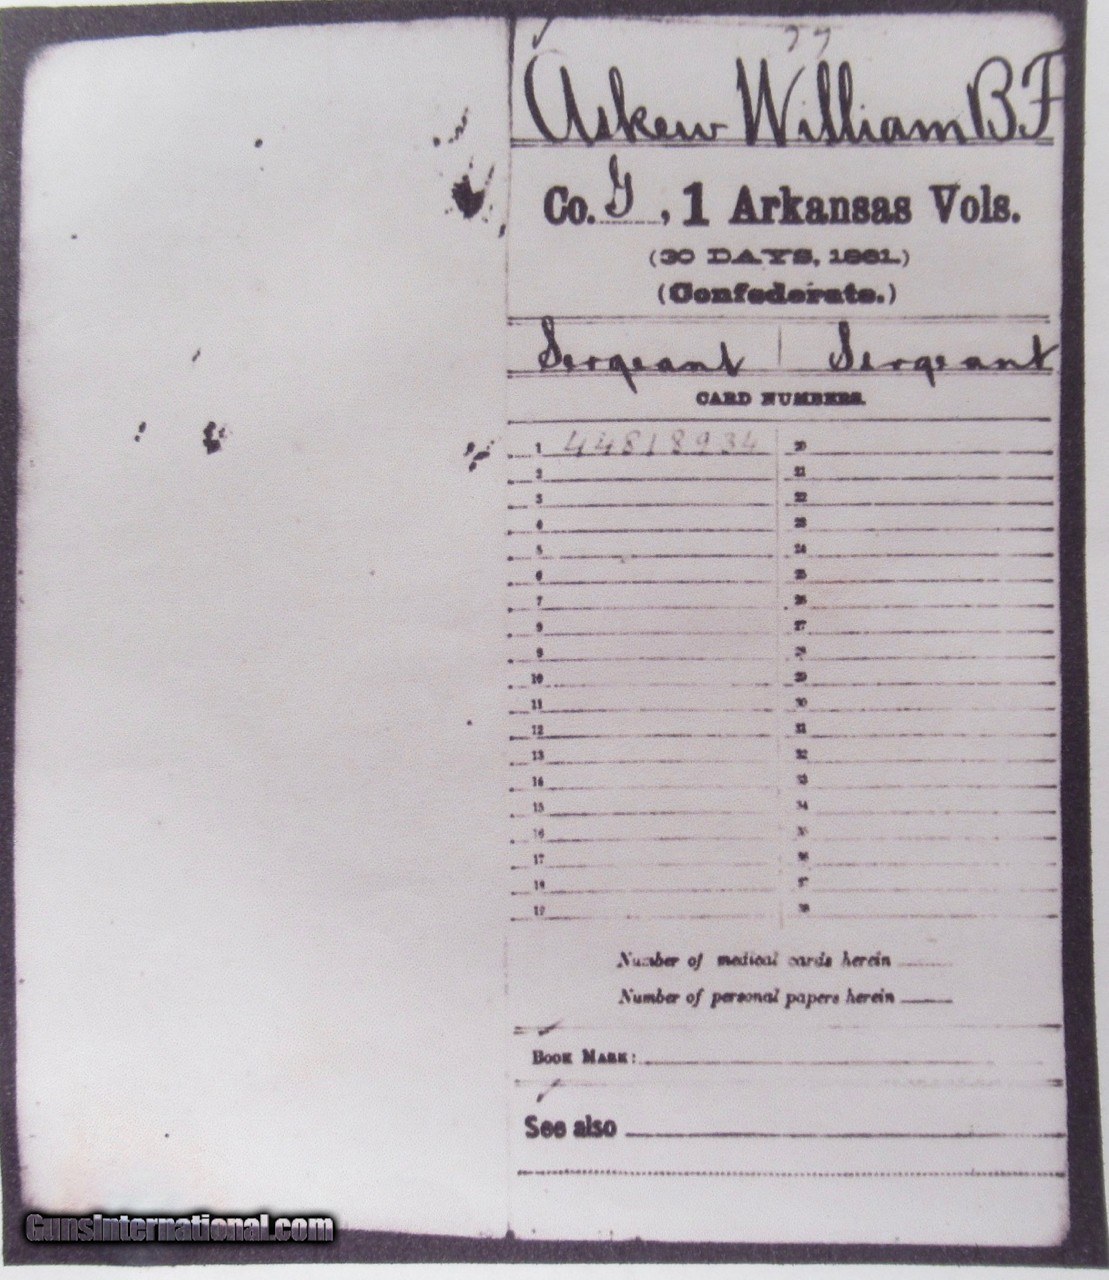 77
Askew William B F
Co. G, 1 Arkansas Vols.
(30 DAYS, 1861.)
(Confederate.)
Sergeant Sergeant
CARD NUMBERS.
1 44818934 20
2 21
3 22
4 23
5 24
6 25
7 26
8 27
9 28
10 29
11 30
12 31
13 32
14 33
15 34
16 35
17 36
18 37
19 38
Number of medical cards herein
Number of personal papers herein
BOOK MARK:
See also
GunsInternational.com